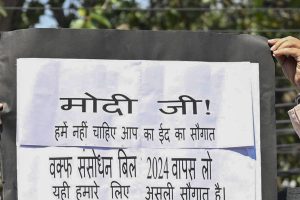 मोदी जी!
हमें नहीं चाहिए आप का ईद का सौगात
वक्फ संसोधन बिल 2024 वापस लो
यही हमारे लिए असली सौगात है।